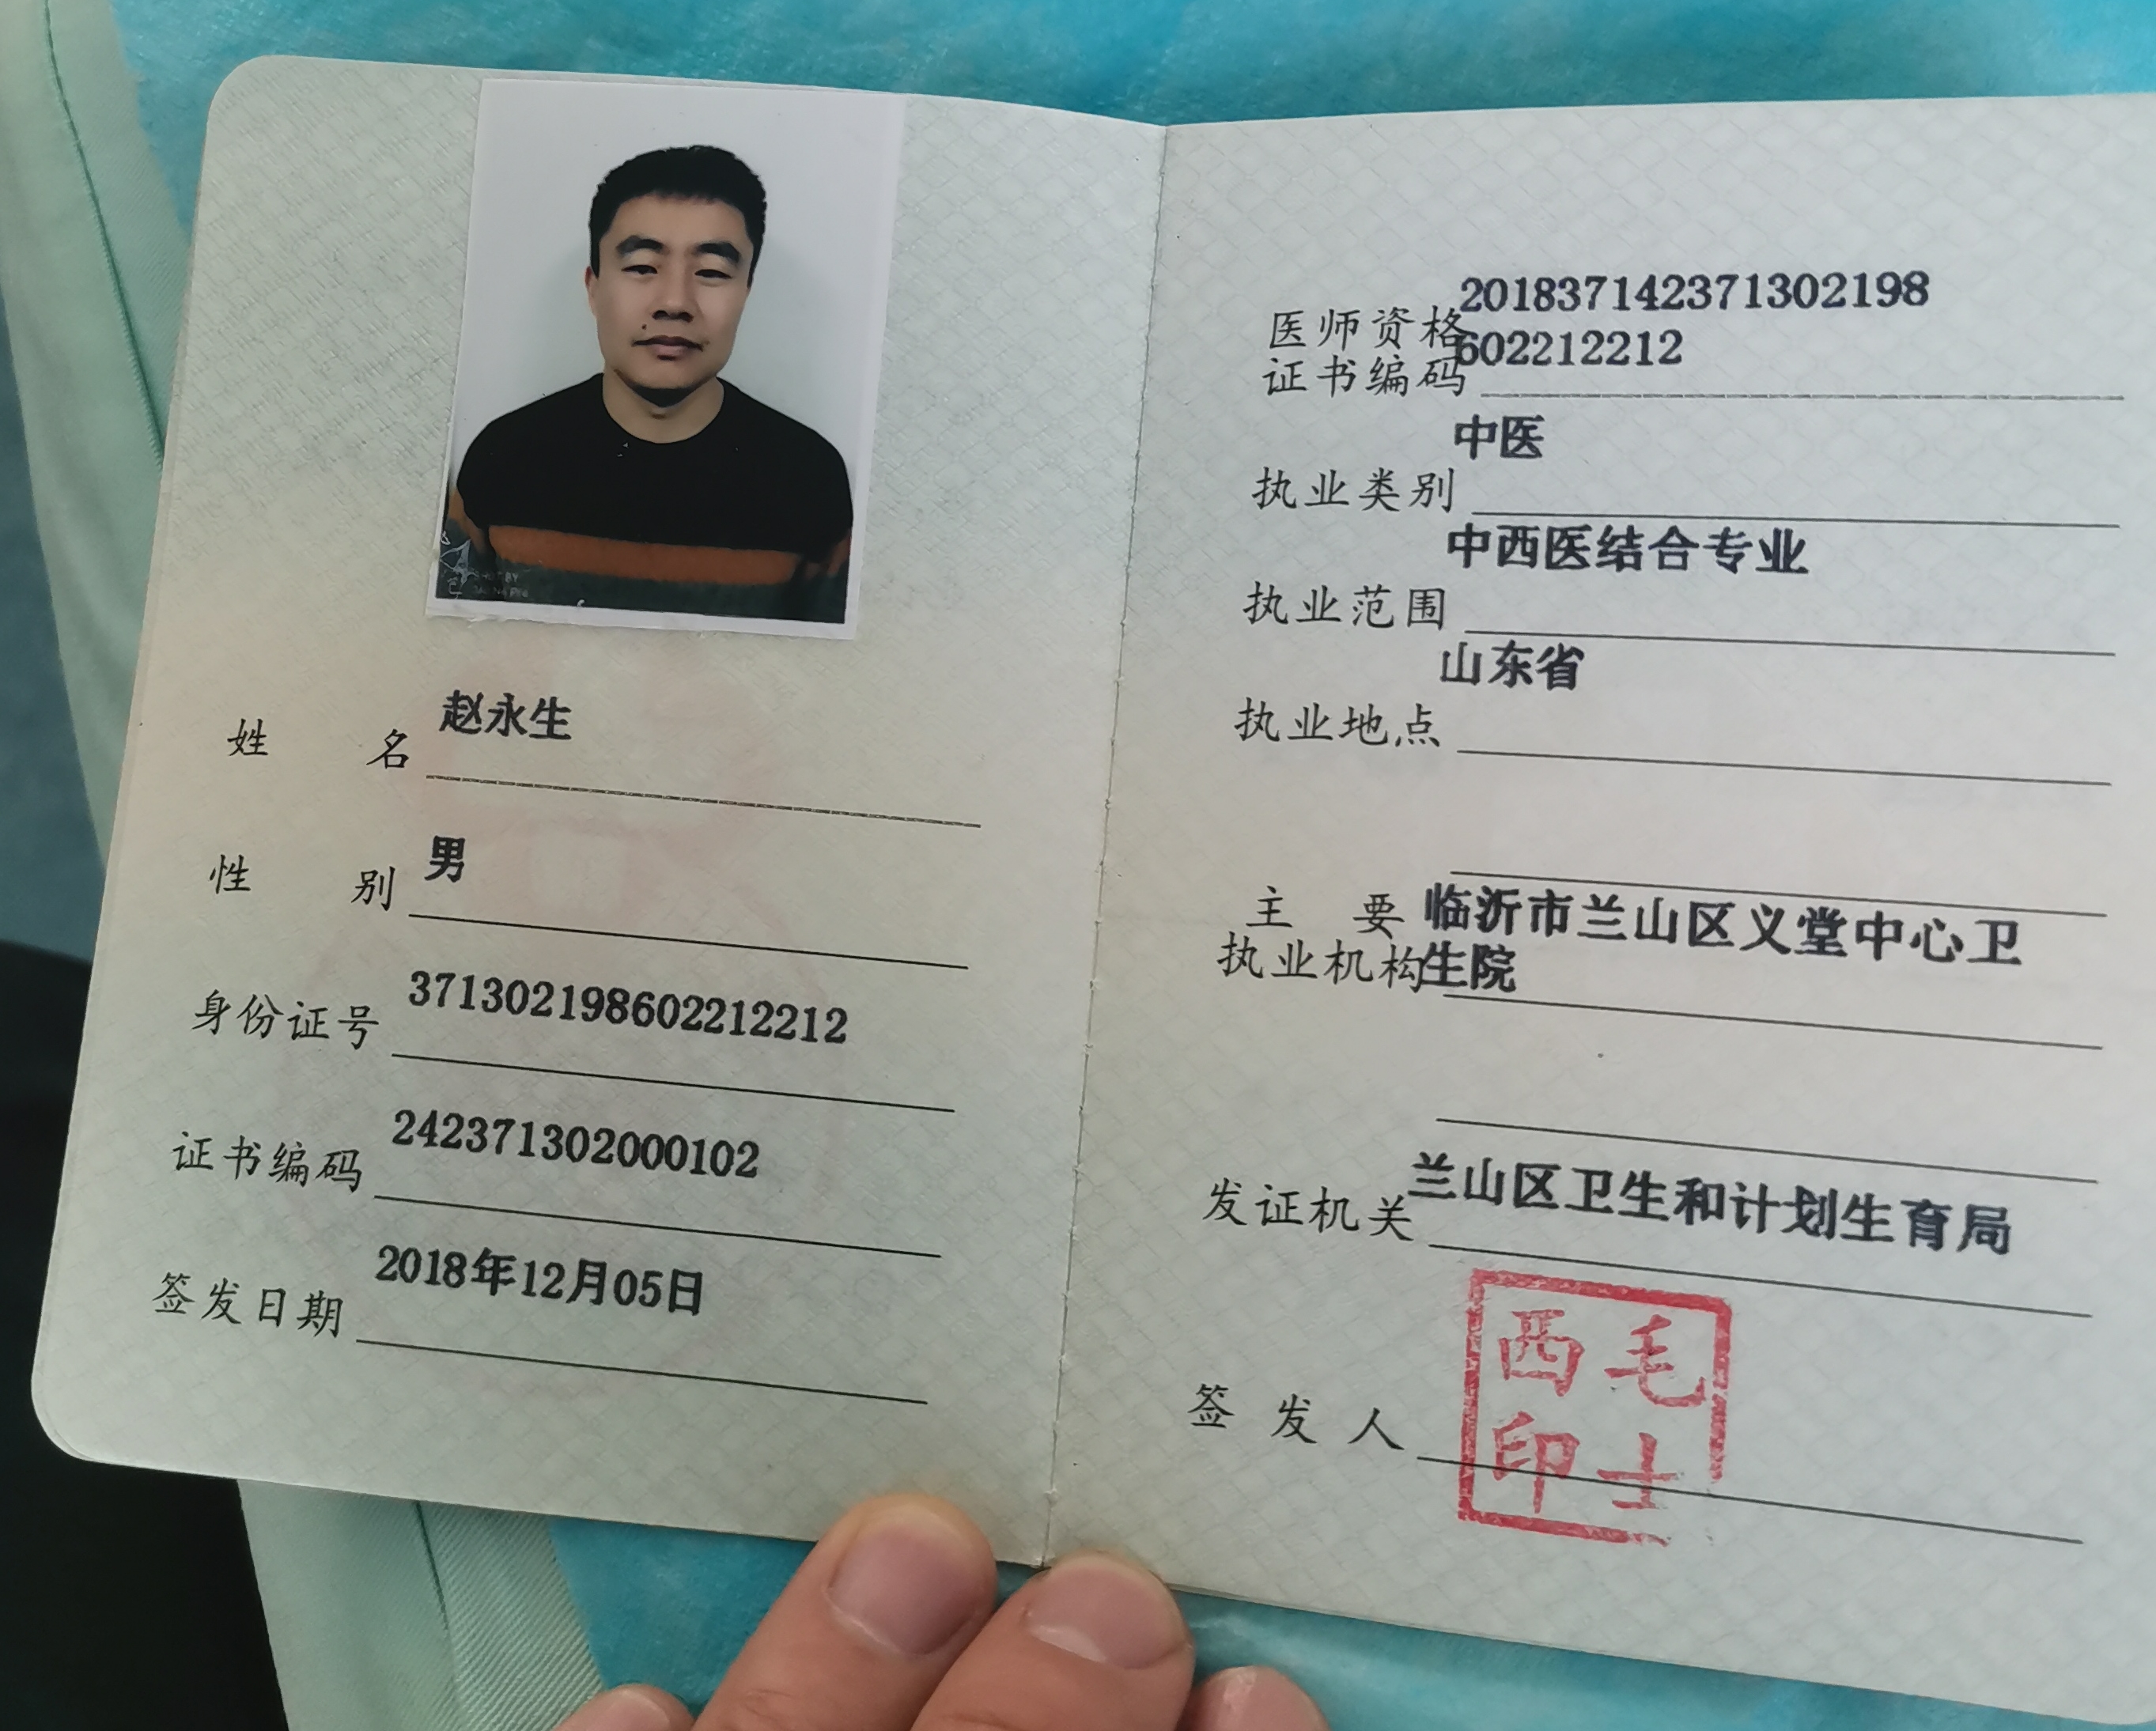 姓 名 赵永生
性 别 男
身份证号 371302198602212212
证书编码 242371302000102
签发日期 2018年12月05日
医师资格 201837142371302198
证书编码 602212212
执业类别 中医
执业范围 中西医结合专业
执业地点 山东省
主 要 临沂市兰山区义堂中心卫
执业机构 生院
发证机关 兰山区卫生和计划生育局
签 发 人
毛士
西印